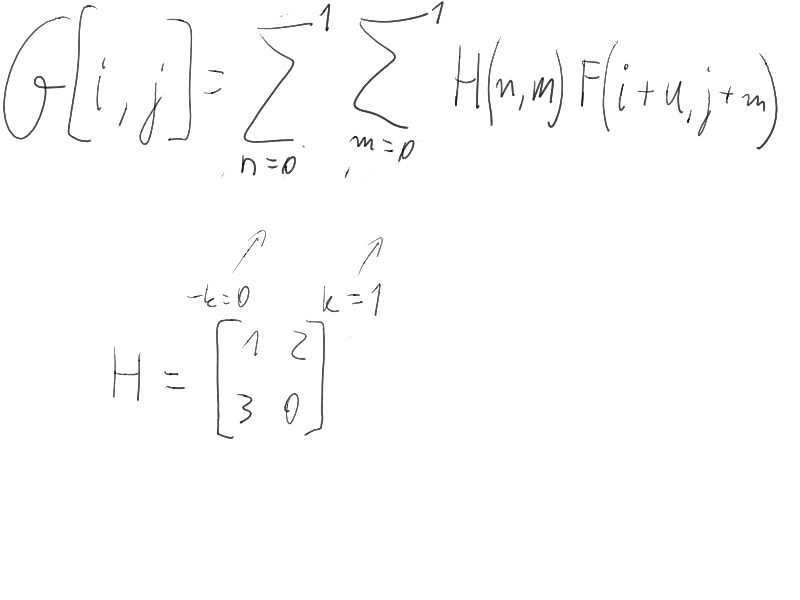 G[i,j] = ∑_{n=0}^{1} ∑_{m=0}^{1} H(n,m) F(i+u,j+m)
-k=0 k=1
H = [1 2
3 0]